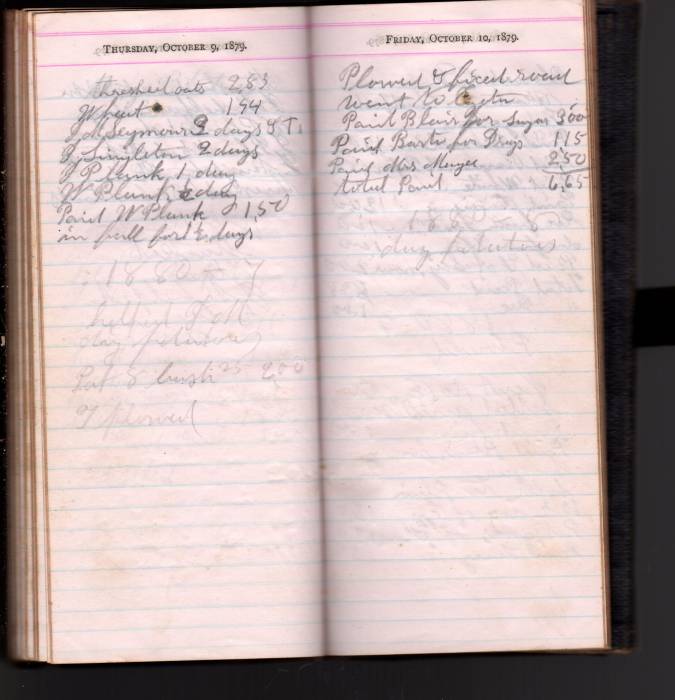 Thursday, October 9, 1879.
threshed oats 253
Wheat 194
J M Seymour 2 days & T.
J Singleton 2 days
J Plank 1 day
W Plank day
Paid W Plank 1,50
in full for days
1880
helped T
day
Lot 8 bush 25 200
T plowed
Friday, October 10, 1879.
Plowed & fixed road
went to
Paid Blair for Sugar 300
Paid Barto for Drugs 115
Paid Mrs 250
total Paid 6,65
1880
dug potatoes